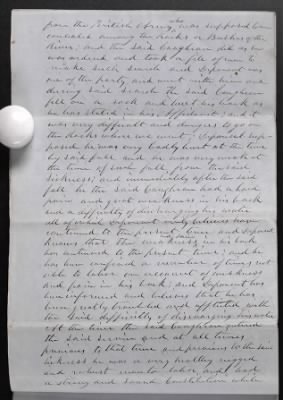 from the British Army, who was supposed to be
concealed among the rocks or Bushes of the
River; and the said Caughran did as he
was ordered and took a file of men to
make such search and Deponent was
one of the party and went with him and
during said search the said Caughran
fell on a rock and hurt his back as
he has stated in his affidavit and it
was very difficult and dangerous to go on
the rocks where we went; Deponent sup-
posed he was very badly hurt at the time
by said fall and he was very weak at
the time of such fall, from the said
sickness; and immediately after the said
fall he the said Caughran had a bad
pain and great weakness in his back
and a difficulty of discharging his water
all of which Deponent verily believes have
continued to the present time; and Deponent
knows that the weakness in his back
has continued to the present time; and he
has been confined a number of times, not
able to labor on account of weakness
and pain in his back; and Deponent has
been informed and believes that he has
been greatly troubled and afflicted with
the said difficulty of discharging his water
At the time the said Caughran entered
the said service and at all times
previous to that time and previous to the same
sickness he was a very healthy rugged
and robust man to labor, and had
a strong and sound Constitution while